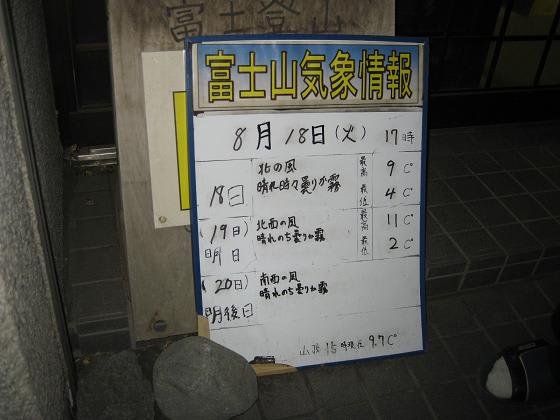 富士登山
富士山気象情報
8月18日(火) 17時
18日 北の風 最高 9 C°
晴れ時々曇りか霧 最低 4 C°
(19日) 北西の風 最高 11 C°
明日 晴れのち曇りか霧 最低 2 C°
(20日) 南西の風
明後日 晴れのち曇りか霧
山頂 15時現在 9.7 C°